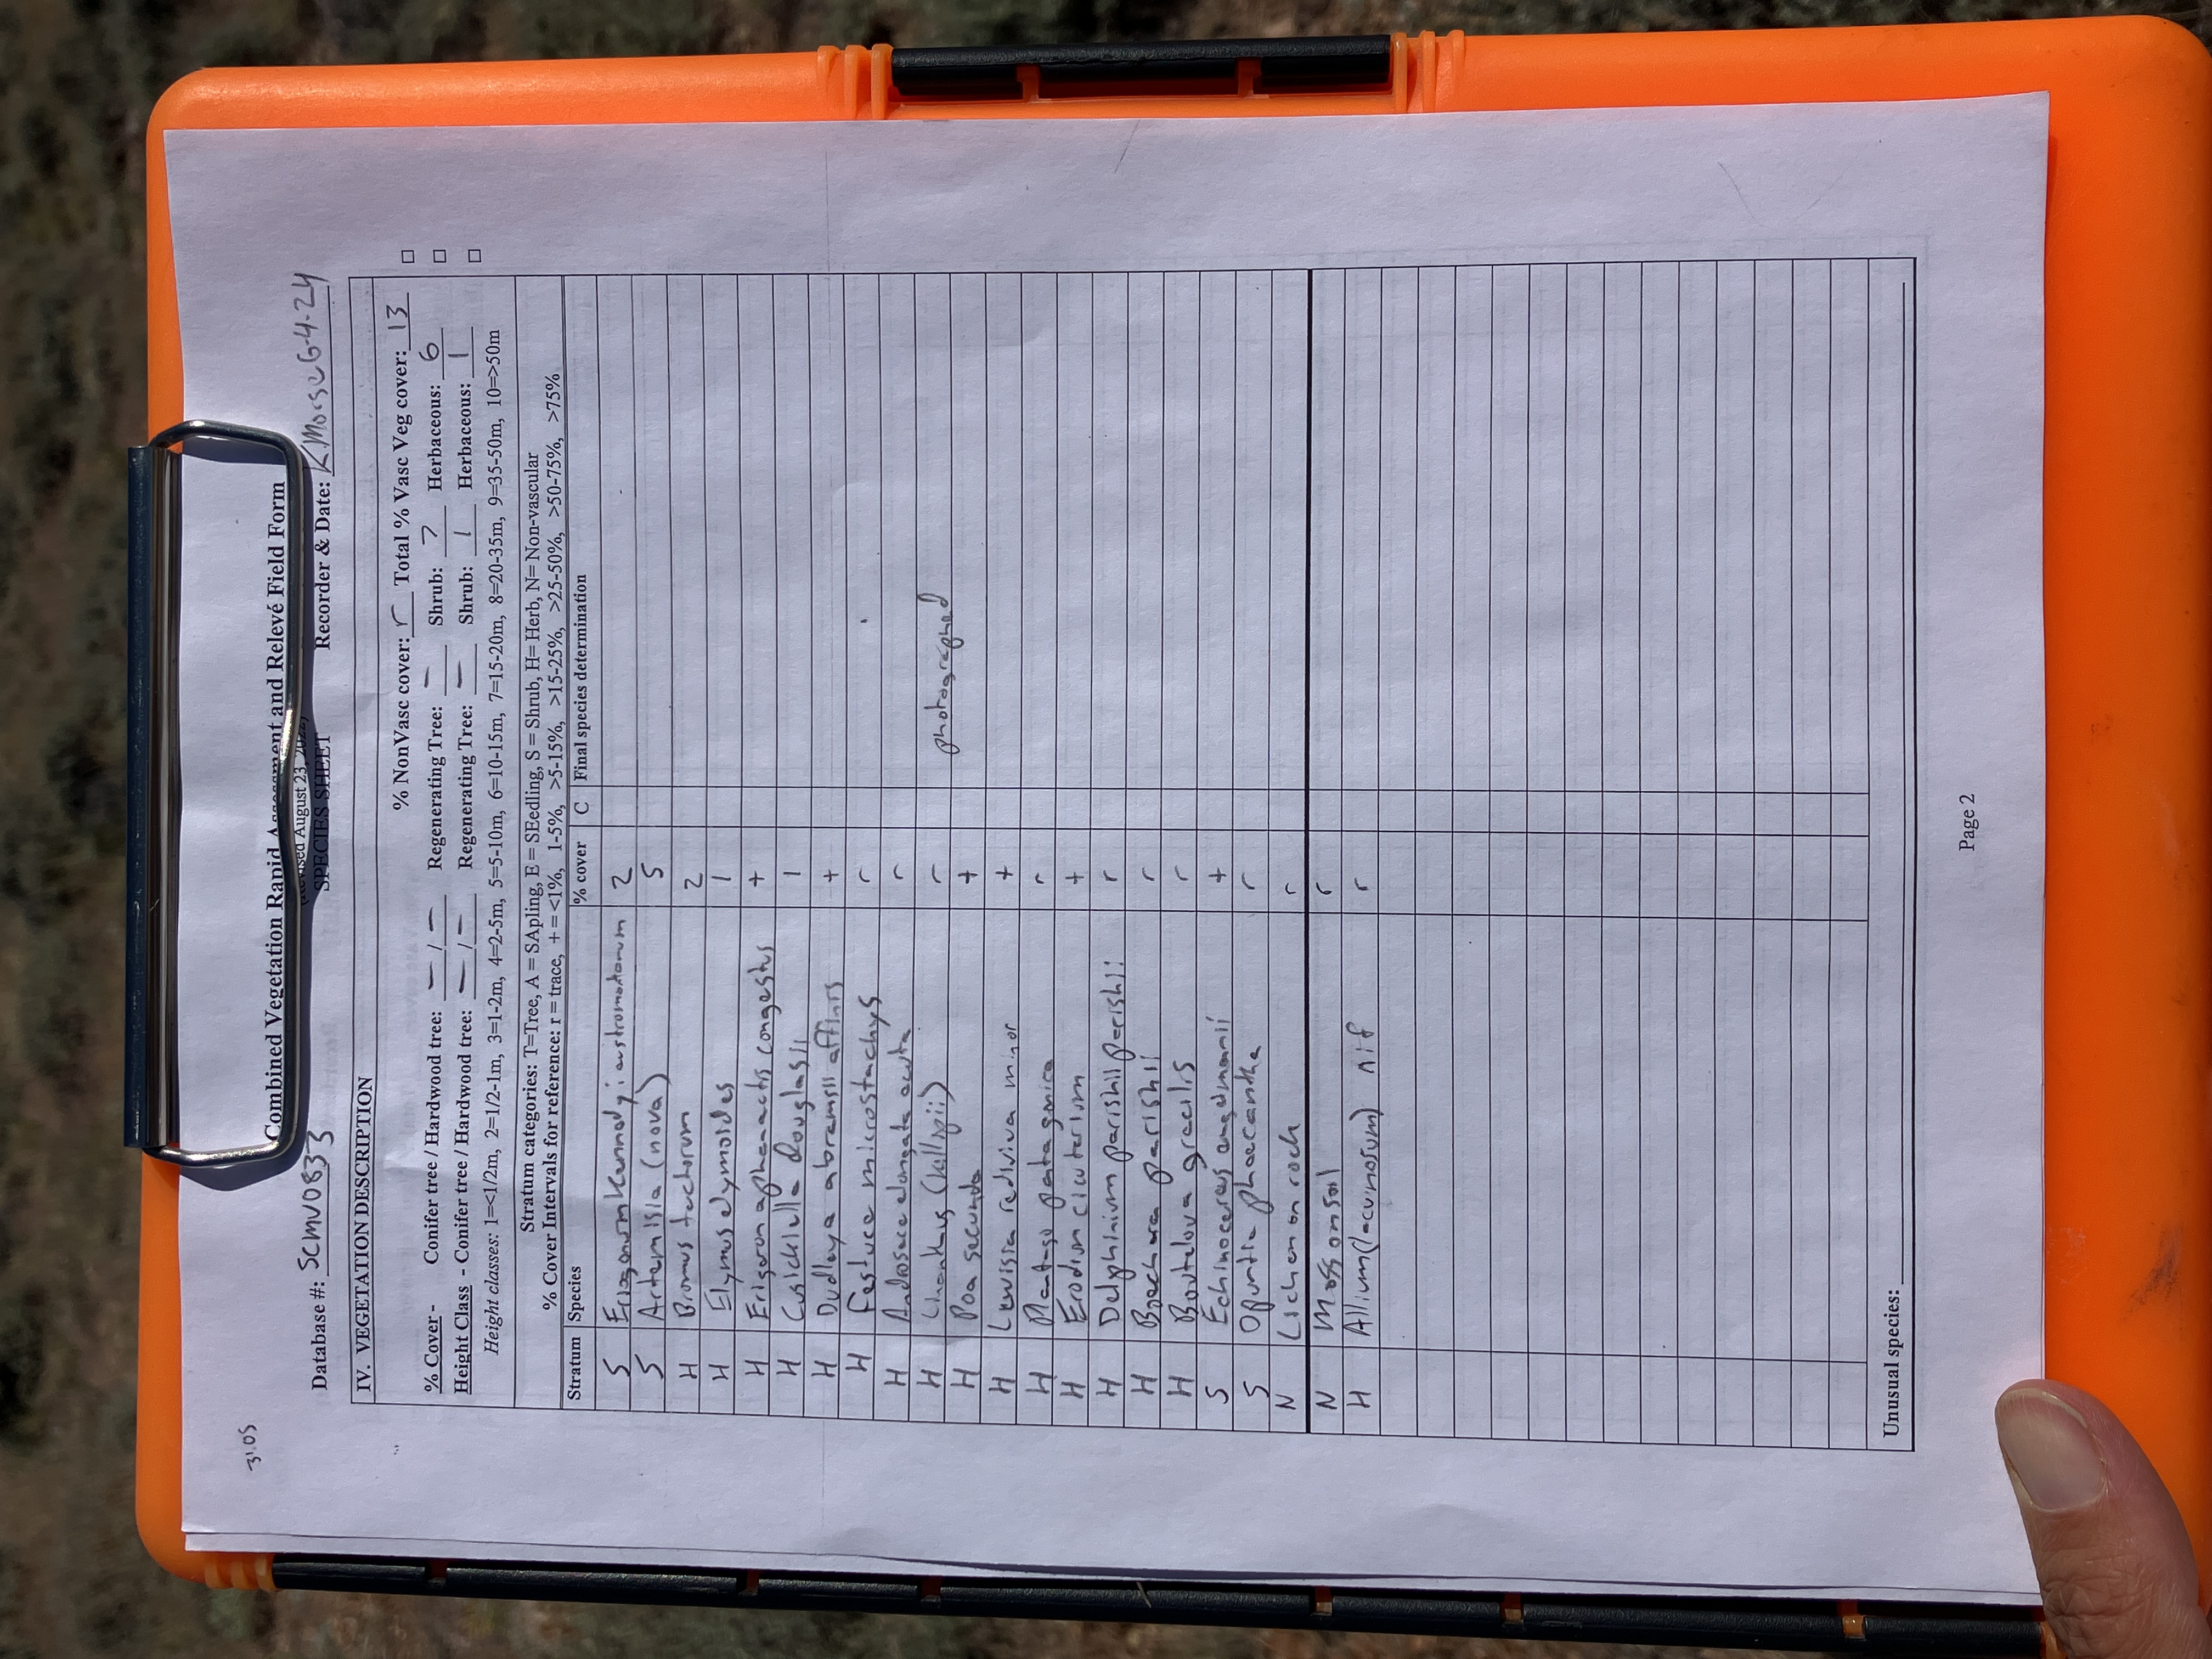 31.05
Combined Vegetation Rapid Assessment and Relevé Field Form
(Revised August 23, 2022)
Database #: SCMV0833 SPECIES SHEET Recorder & Date: KMorse 6-4-24
IV. VEGETATION DESCRIPTION
% NonVasc cover: r Total % Vasc Veg cover: 13
% Cover - Conifer tree / Hardwood tree: — / — Regenerating Tree: — Shrub: 7 Herbaceous: 6
Height Class - Conifer tree / Hardwood tree: — / — Regenerating Tree: — Shrub: 1 Herbaceous: 1
Height classes: 1=<1/2m, 2=1/2-1m, 3=1-2m, 4=2-5m, 5=5-10m, 6=10-15m, 7=15-20m, 8=20-35m, 9=35-50m, 10=>50m
Stratum categories: T=Tree, A = SApling, E = SEedling, S = Shrub, H= Herb, N= Non-vascular
% Cover Intervals for reference: r = trace, + = <1%, 1-5%, >5-15%, >15-25%, >25-50%, >50-75%, >75%
Stratum Species % cover C Final species determination
S Eriogonum kennedyi austromontanum 2
S Artemisia (nova) 5
H Bromus tectorum 2
H Elymus elymoides 1
H Erigeron aphanactis congestus +
H Cusickiella douglasii 1
H Dudleya abramsii affinis +
H Festuca microstachys r
H Androsace elongata acuta r
H Linanthus (killipii) r photographed
H Poa secunda +
H Lewisia rediviva minor +
H Plantago patagonica r
H Erodium cicutarium +
H Delphinium parishii parishii r
H Boechera parishii r
H Bouteloua gracilis r
S Echinocereus engelmanii +
S Opuntia phaeacantha r
N Lichen on rock r
N Moss on soil r
H Allium (lacunosum) nif r
Unusual species:
Page 2